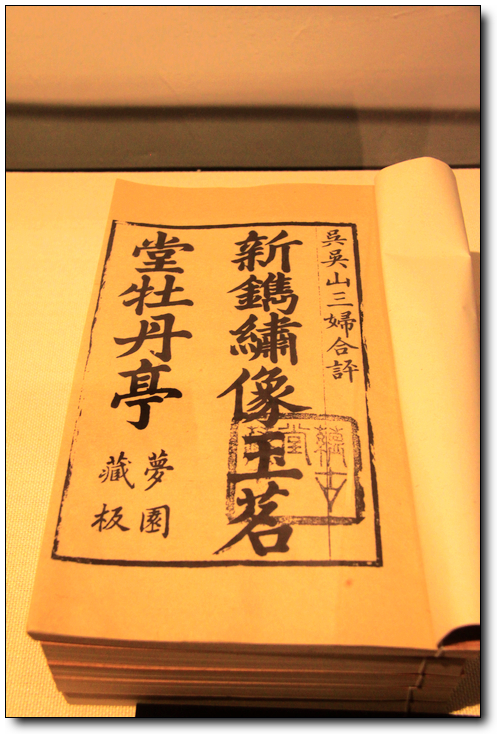 吳吳山三婦合評
新鐫繡像玉茗
堂牡丹亭
夢園
藏板